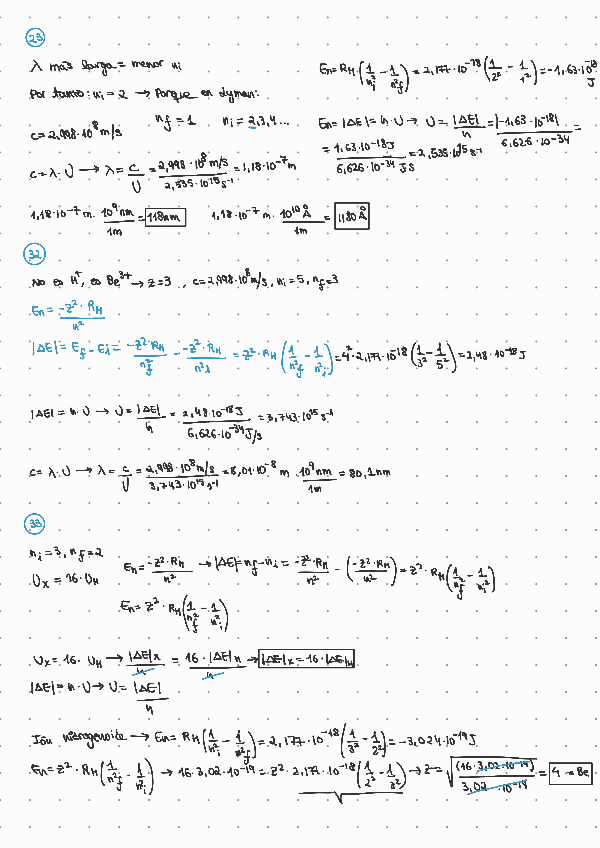 23
λ más larga = menor ni
Por tanto: ni = 2 → Porque en Lyman:
nf = 1    ni = 2,3,4...
c = 2,998·10⁸ m/s
c = λ·υ → λ = c/υ = 2,998·10⁸ m/s / 2,535·10¹⁵ s⁻¹ = 1,18·10⁻⁷ m
En = RH (1/ni² - 1/nf²) = 2,177·10⁻¹⁸ (1/2² - 1/1²) = -1,63·10⁻¹⁸ J
En = |ΔE| = h·υ → υ = |ΔE|/h = |-1,63·10⁻¹⁸| / 6,626·10⁻³⁴ =
= 1,63·10⁻¹⁸ J / 6,626·10⁻³⁴ J S = 2,535·10¹⁵ s⁻¹
1,18·10⁻⁷ m · 10⁹ nm / 1m = 118nm    1,18·10⁻⁷ m · 10¹⁰ Å / 1m = 1180 Å
32
No es H⁺, es Be³⁺ → z=3 , c=2,998·10⁸ m/s, ni = 5, nf = 3
En = -z²·RH / n²
|ΔE| = Ef - Ei = -z²·RH / nf² - -z²·RH / n²i = z²·RH (1/n²f - 1/n²i) = 4²·2,177·10⁻¹⁸ (1/3² - 1/5²) = 2,48·10⁻¹⁸ J
|ΔE| = h·υ → υ = |ΔE|/h = 2,48·10⁻¹⁸ J / 6,626·10⁻³⁴ J/s = 3,743·10¹⁵ s⁻¹
c = λ·υ → λ = c/υ = 2,998·10⁸ m/s / 3,743·10¹⁵ s⁻¹ = 8,01·10⁻⁸ m · 10⁹ nm / 1m = 80,1nm
33
ni = 3, nf = 2
υx = 16·υH
En = -z²·RH / n² → |ΔE| = nf - ni = -z²·RH / n² - (-z²·RH / n²) = z²·RH (1/n²f - 1/ni²)
En = z²·RH (1/n²f - 1/n²i)
υx = 16·υH → |ΔE|x / h = 16·|ΔE|H / h → |ΔE|x = 16·|ΔE|H
|ΔE| = h·υ → υ = |ΔE| / h
Ión hidrogenoide → En = RH (1/n²i - 1/n²f) = 2,177·10⁻¹⁸ (1/3² - 1/2²) = -3,024·10⁻¹⁹ J
En = z²·RH (1/n²f - 1/n²i) → 16·3,02·10⁻¹⁹ = z²·2,177·10⁻¹⁸ (1/2² - 1/3²) → z = √((16·3,02·10⁻¹⁹) / 3,02·10⁻¹⁹) = 4 → Be